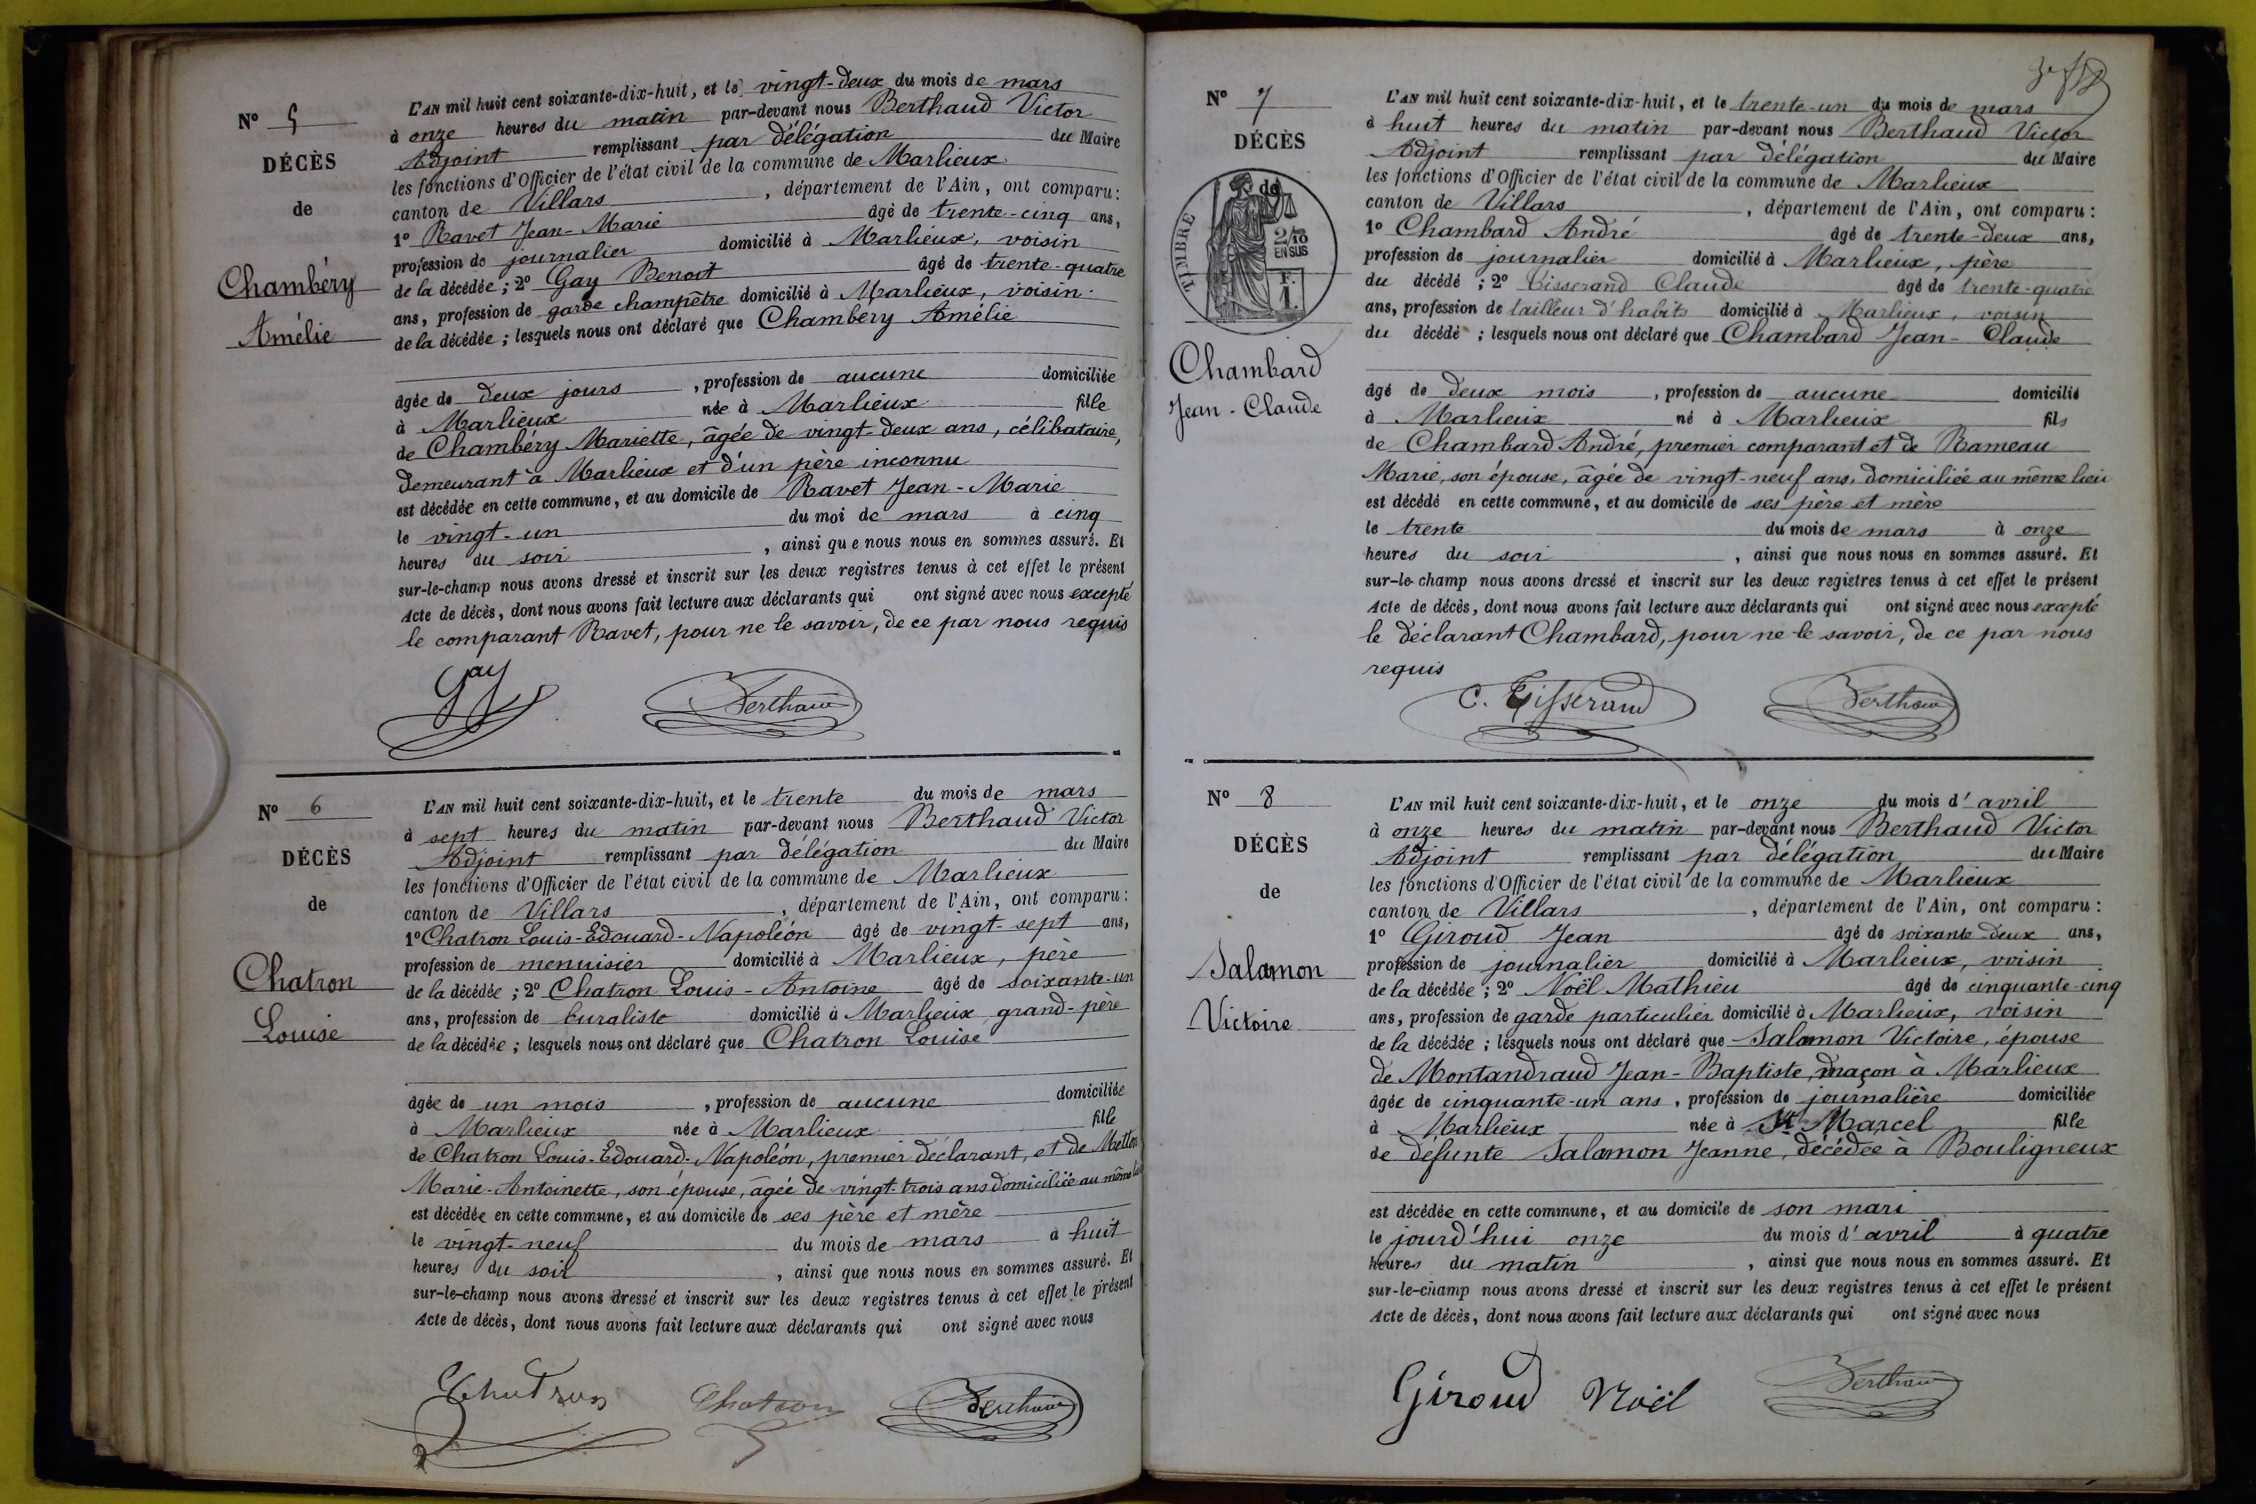 N° 5
DÉCÈS
de
Chambéry
Amélie
L'AN mil huit cent soixante-dix-huit, et le vingt-deux du mois de mars
à onze heures du matin par-devant nous Berthaud Victor
Adjoint remplissant par délégation du Maire
les fonctions d'Officier de l'état civil de la commune de Marlieux
canton de Villars, département de l'Ain, ont comparu:
1° Ravet Jean-Marie âgé de trente-cinq ans,
profession de journalier domicilié à Marlieux, voisin
de la décédée; 2° Gay Benoit âgé de trente-quatre
ans, profession de garde champêtre domicilié à Marlieux, voisin
de la décédée; lesquels nous ont déclaré que Chambéry Amélie
âgée de deux jours, profession de aucune domiciliée
à Marlieux née à Marlieux fille
de Chambéry Mariette, âgée de vingt-deux ans, célibataire,
demeurant à Marlieux et d'un père inconnu
est décédée en cette commune, et au domicile de Ravet Jean-Marie
le vingt-un du moi de mars à cinq
heures du soir, ainsi que nous nous en sommes assuré. Et
sur-le-champ nous avons dressé et inscrit sur les deux registres tenus à cet effet le présent
Acte de décès, dont nous avons fait lecture aux déclarants qui ont signé avec nous excepté
le comparant Ravet, pour ne le savoir, de ce par nous requis
Gay Berthaud
N° 6
DÉCÈS
de
Chatron
Louise
L'AN mil huit cent soixante-dix-huit, et le trente du mois de mars
à sept heures du matin par-devant nous Berthaud Victor
Adjoint remplissant par délégation du Maire
les fonctions d'Officier de l'état civil de la commune de Marlieux
canton de Villars, département de l'Ain, ont comparu:
1° Chatron Louis-Edouard-Napoléon âgé de vingt-sept ans,
profession de menuisier domicilié à Marlieux, père
de la décédée; 2° Chatron Louis-Antoine âgé de soixante-un
ans, profession de buraliste domicilié à Marlieux grand-père
de la décédée; lesquels nous ont déclaré que Chatron Louise
âgée de un mois, profession de aucune domiciliée
à Marlieux née à Marlieux fille
de Chatron Louis-Edouard-Napoléon, premier déclarant, et de
Marie-Antoinette, son épouse, âgée de vingt-trois ans domiciliée au même
est décédée en cette commune, et au domicile de ses père et mère
le vingt-neuf du mois de mars à huit
heures du soir, ainsi que nous nous en sommes assuré. Et
sur-le-champ nous avons dressé et inscrit sur les deux registres tenus à cet effet le présent
Acte de décès, dont nous avons fait lecture aux déclarants qui ont signé avec nous
Chatron Chatron Berthaud
N° 7
DÉCÈS
de
TIMBRE
2/10
EN SUS
F.
1.
Chambard
Jean-Claude
L'AN mil huit cent soixante-dix-huit, et le trente-un du mois de mars
à huit heures du matin par-devant nous Berthaud Victor
Adjoint remplissant par délégation du Maire
les fonctions d'Officier de l'état civil de la commune de Marlieux
canton de Villars, département de l'Ain, ont comparu:
1° Chambard André âgé de trente-deux ans,
profession de journalier domicilié à Marlieux, père
du décédé; 2° Tisserand Claude âgé de trente-quatre
ans, profession de tailleur d'habits domicilié à Marlieux, voisin
du décédé; lesquels nous ont déclaré que Chambard Jean-Claude
âgé de deux mois, profession de aucune domicilié
à Marlieux né à Marlieux fils
de Chambard André, premier comparant et de Rameau
Marie, son épouse, âgée de vingt-neuf ans, domiciliée au même lieu
est décédé en cette commune, et au domicile de ses père et mère
le trente du mois de mars à onze
heures du soir, ainsi que nous nous en sommes assuré. Et
sur-le-champ nous avons dressé et inscrit sur les deux registres tenus à cet effet le présent
Acte de décès, dont nous avons fait lecture aux déclarants qui ont signé avec nous excepté
le déclarant Chambard, pour ne le savoir, de ce par nous
requis
C. Tisserand Berthaud
N° 8
DÉCÈS
de
Salamon
Victoire
L'AN mil huit cent soixante-dix-huit, et le onze du mois d'avril
à onze heures du matin par-devant nous Berthaud Victor
Adjoint remplissant par délégation du Maire
les fonctions d'Officier de l'état civil de la commune de Marlieux
canton de Villars, département de l'Ain, ont comparu:
1° Giroud Jean âgé de soixante-deux ans,
profession de journalier domicilié à Marlieux, voisin
de la décédée; 2° Noël Mathieu âgé de cinquante-cinq
ans, profession de garde particulier domicilié à Marlieux, voisin
de la décédée; lesquels nous ont déclaré que Salamon Victoire, épouse
de Montandraud Jean-Baptiste, maçon à Marlieux
âgée de cinquante-un ans, profession de journalière domiciliée
à Marlieux née à St Marcel fille
de défunte Salamon Jeanne, décédée à Bouligneux
est décédée en cette commune, et au domicile de son mari
le jourd'hui onze du mois d'avril à quatre
heures du matin, ainsi que nous nous en sommes assuré. Et
sur-le-champ nous avons dressé et inscrit sur les deux registres tenus à cet effet le présent
Acte de décès, dont nous avons fait lecture aux déclarants qui ont signé avec nous
Giroud Noël Berthaud